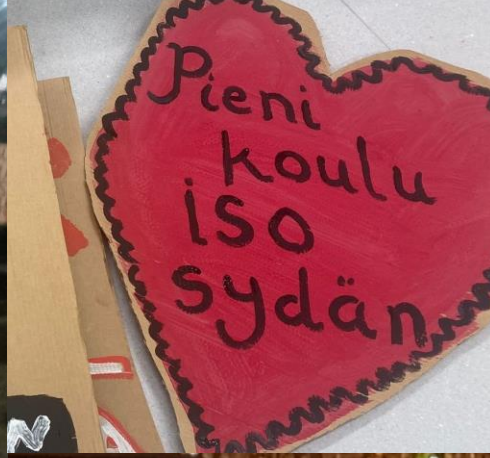 Pieni
koulu
iso
sydän